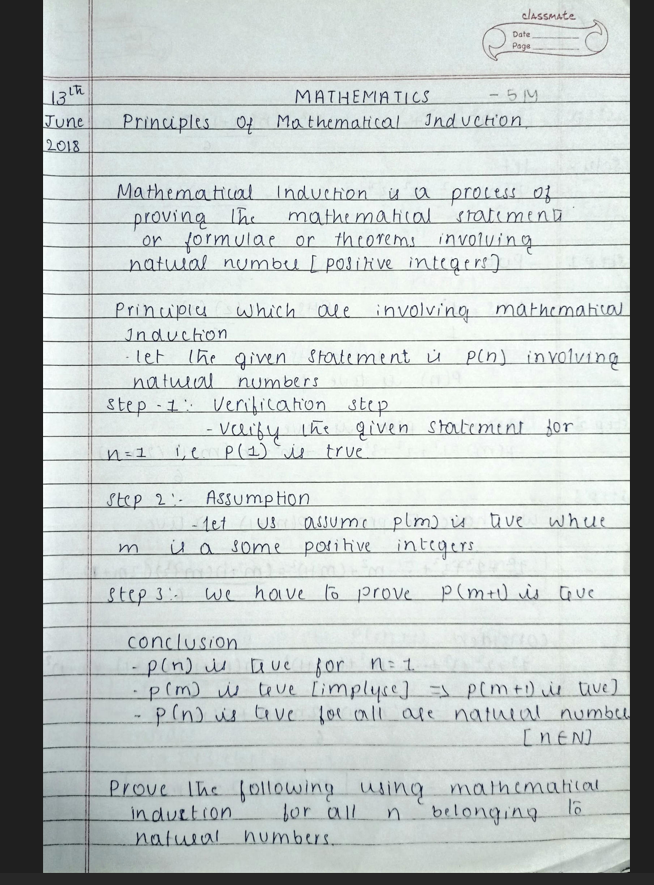 classmate
Date
Page
13th MATHEMATICS - 5M
June Principles of Mathematical Induction.
2018
Mathematical Induction is a process of
proving the mathematical statements
or formulae or theorems involving
natural number [positive integers]
Principles which are involving mathematical
Induction
- let the given statement is P(n) involving
natural numbers
Step -1:- Verification step
- Verify the given statement for
n=1 i,e P(1) is true.
Step 2:- Assumption
- let us assume p(m) is true where
m is a some positive integers
Step 3:- we have to prove P(m+1) is true
conclusion
- p(n) is true for n=1
- p(m) is true [implyse] => p(m+1) is true]
- p(n) is true for all are natural number
[n∈N]
Prove the following using mathematical
induction for all n belonging to
natural numbers.